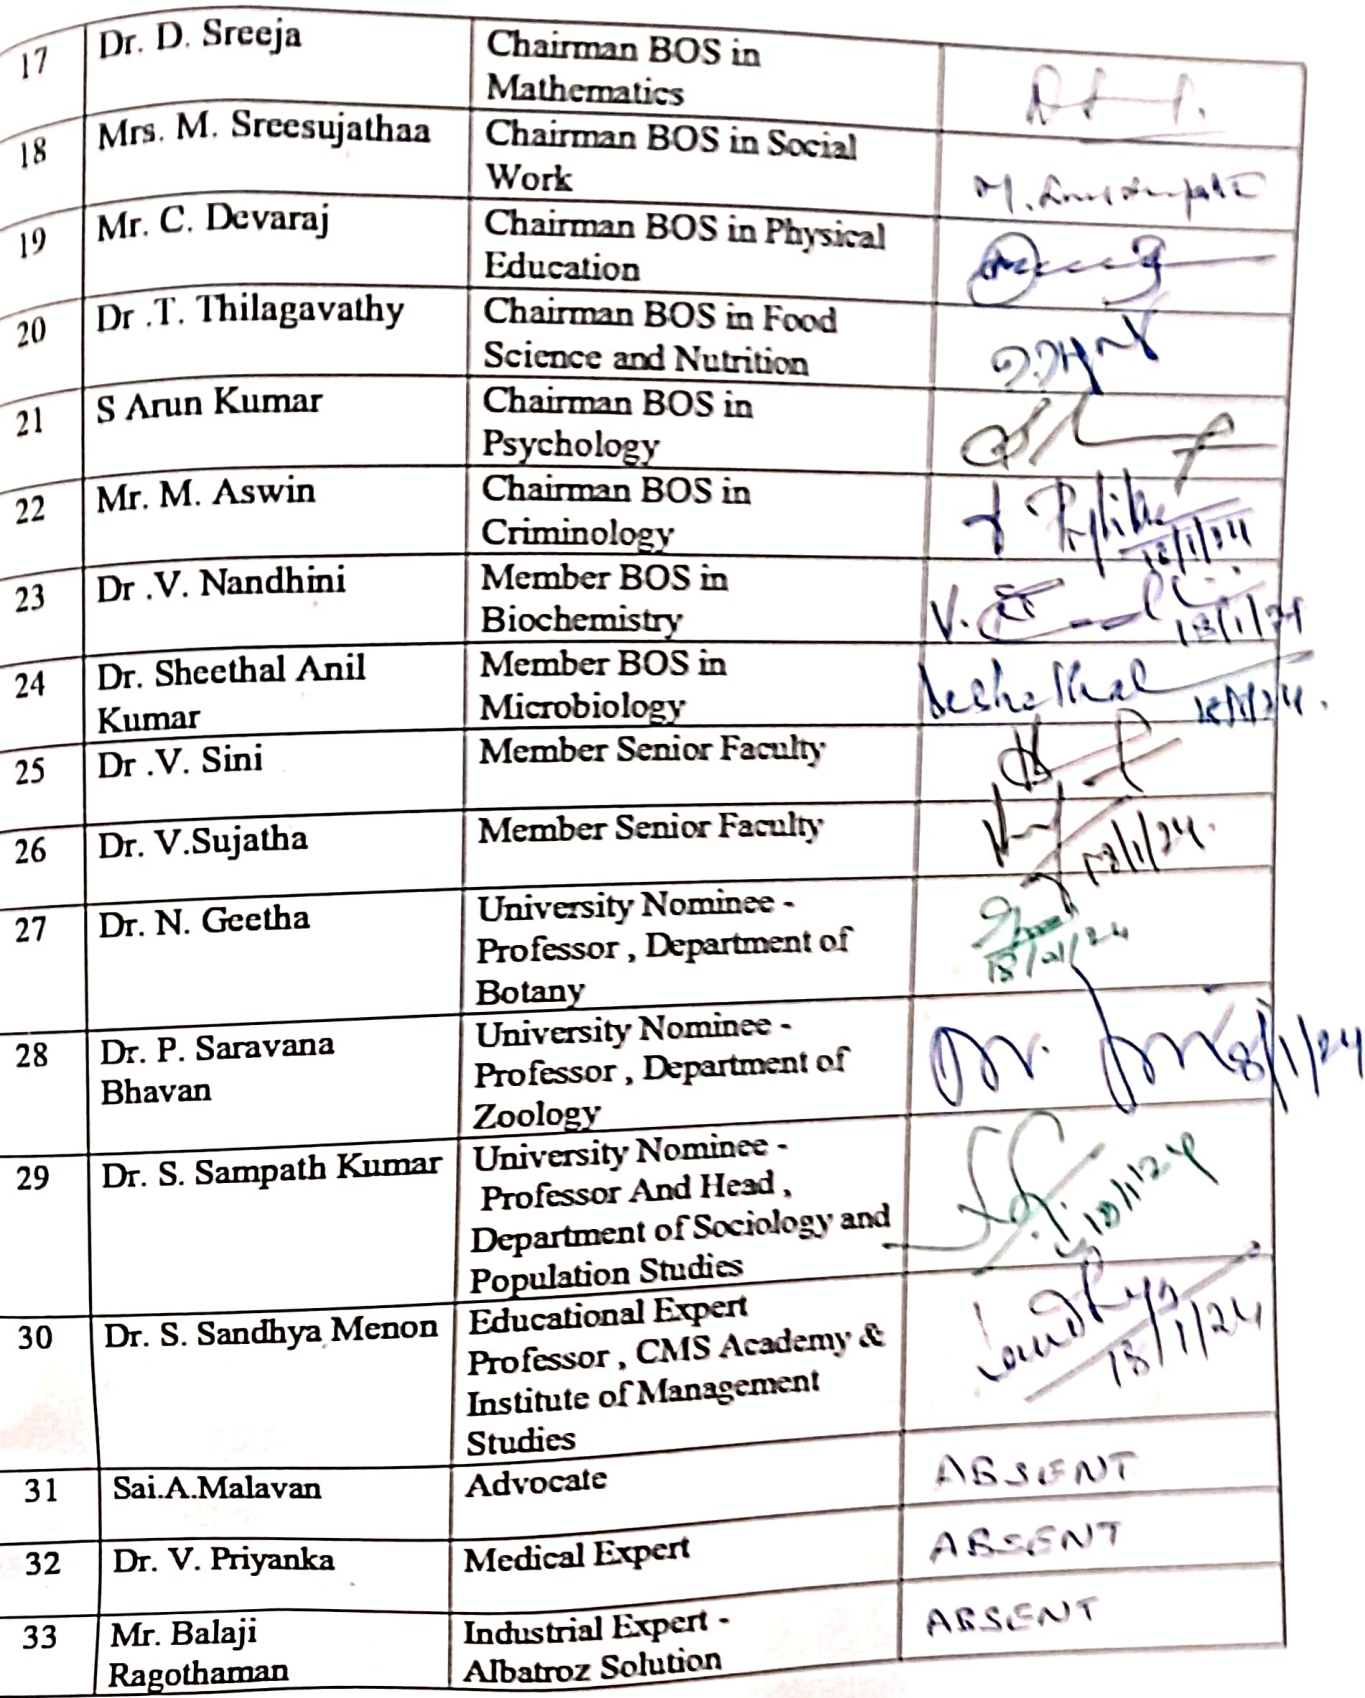 17 Dr. D. Sreeja Chairman BOS in
Mathematics
18 Mrs. M. Sreesujathaa Chairman BOS in Social
Work
19 Mr. C. Devaraj Chairman BOS in Physical
Education
20 Dr .T. Thilagavathy Chairman BOS in Food
Science and Nutrition
21 S Arun Kumar Chairman BOS in
Psychology
22 Mr. M. Aswin Chairman BOS in
Criminology 18/1/24
23 Dr .V. Nandhini Member BOS in
Biochemistry 18/1/24
24 Dr. Sheethal Anil Member BOS in
Kumar Microbiology 18/1/24.
25 Dr .V. Sini Member Senior Faculty
26 Dr. V.Sujatha Member Senior Faculty 18/1/24.
27 Dr. N. Geetha University Nominee -
Professor , Department of 18/01/24
Botany
28 Dr. P. Saravana University Nominee -
Bhavan Professor , Department of 18/1/24
Zoology
29 Dr. S. Sampath Kumar University Nominee -
Professor And Head , 18/1/24
Department of Sociology and
Population Studies
30 Dr. S. Sandhya Menon Educational Expert
Professor , CMS Academy & 18/1/24
Institute of Management
Studies
31 Sai.A.Malavan Advocate ABSENT
32 Dr. V. Priyanka Medical Expert ABSENT
33 Mr. Balaji Industrial Expert - ABSENT
Ragothaman Albatroz Solution